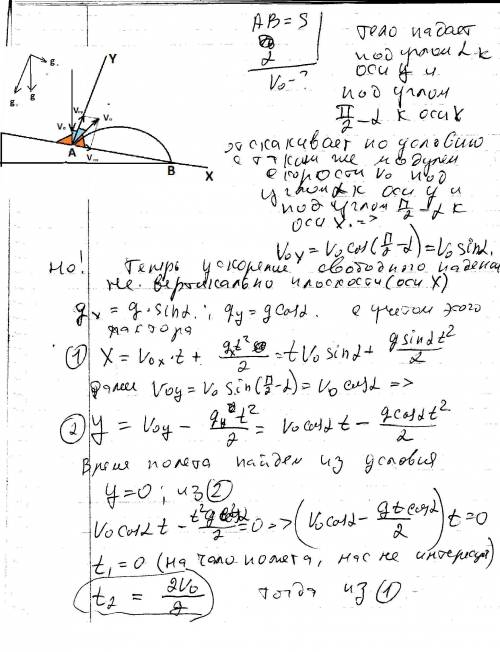 AB = S
α
V₀ - ?
Тело падает
под углом α к
оси y и
под углом
π/2 - α к оси X
отскакивает по условию
с таким же модулем
скорости V₀ под
углом α к оси y и
под углом π/2 - α к
оси X. =>
V₀ₓ = V₀ cos(π/2 - α) = V₀ sinα.
g
g
g
Y
V₀
V₀
A
B
X
Но! Теперь ускорение свободного падения
не вертикально плоскости (оси X)
gₓ = g·sinα; gy = g cosα. с учетом этого
фактора
① X = V₀ₓ·t + gₓt²/2 = tV₀ sinα + g sinα t²/2
далее V₀y = V₀ sin(π/2 - α) = V₀ cosα =>
② y = V₀y - gy t²/2 = V₀ cosα t - g cosα t²/2
Время полета найдем из условия
y = 0; из ②
V₀ cosα t - t² g cosα/2 = 0 => (V₀ cosα - gt cosα/2) t = 0
t₁ = 0 (начало полета, нас не интересует)
t₂ = 2V₀/g тогда из ①